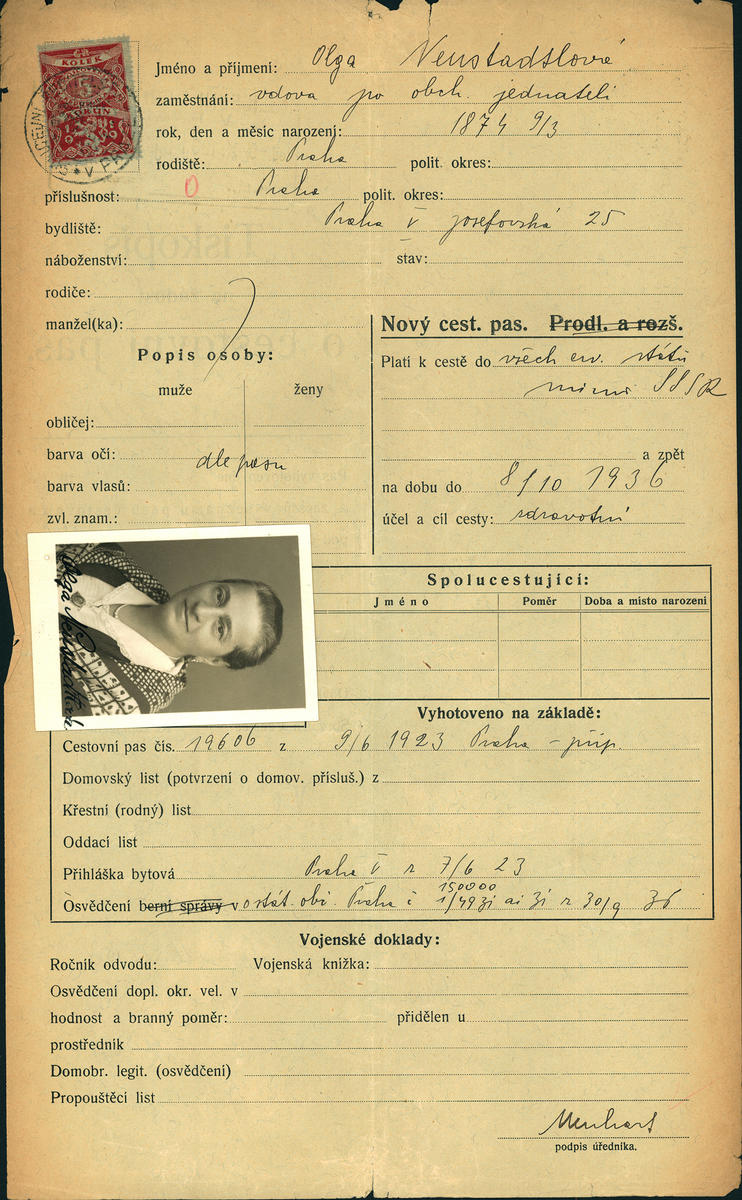 KOLEK
Jméno a příjmení: Olga Neustadtlová
zaměstnání: vdova po obch. jednateli
rok, den a měsíc narození: 1874 9/3
rodiště: Praha polit. okres:
příslušnost: 0 Praha polit. okres:
bydliště: Praha V Josefovská 25
náboženství: stav:
rodiče:
manžel(ka):
Popis osoby:
muže ženy
obličej:
barva očí: dle pasu
barva vlasů:
zvl. znam.:
Nový cest. pas. Prodl. a rozš.
Platí k cestě do všech ev. států
mimo SSSR
a zpět
na dobu do 8/10 1936
účel a cíl cesty: zdravotní
Olga
Spolucestující:
Jméno Poměr Doba a místo narození
Vyhotoveno na základě:
Cestovní pas čís. 19606 z 9/6 1923 Praha - příp.
Domovský list (potvrzení o domov. přísluš.) z
Křestní (rodný) list
Oddací list
Přihláška bytová Praha V z 7/6 23
150000
Osvědčení berní správy v Praha z 30/9 36
Vojenské doklady:
Ročník odvodu: Vojenská knížka:
Osvědčení dopl. okr. vel. v
hodnost a branný poměr: přidělen u
prostředník
Domobr. legit. (osvědčení)
Propouštěcí list
podpis úředníka.